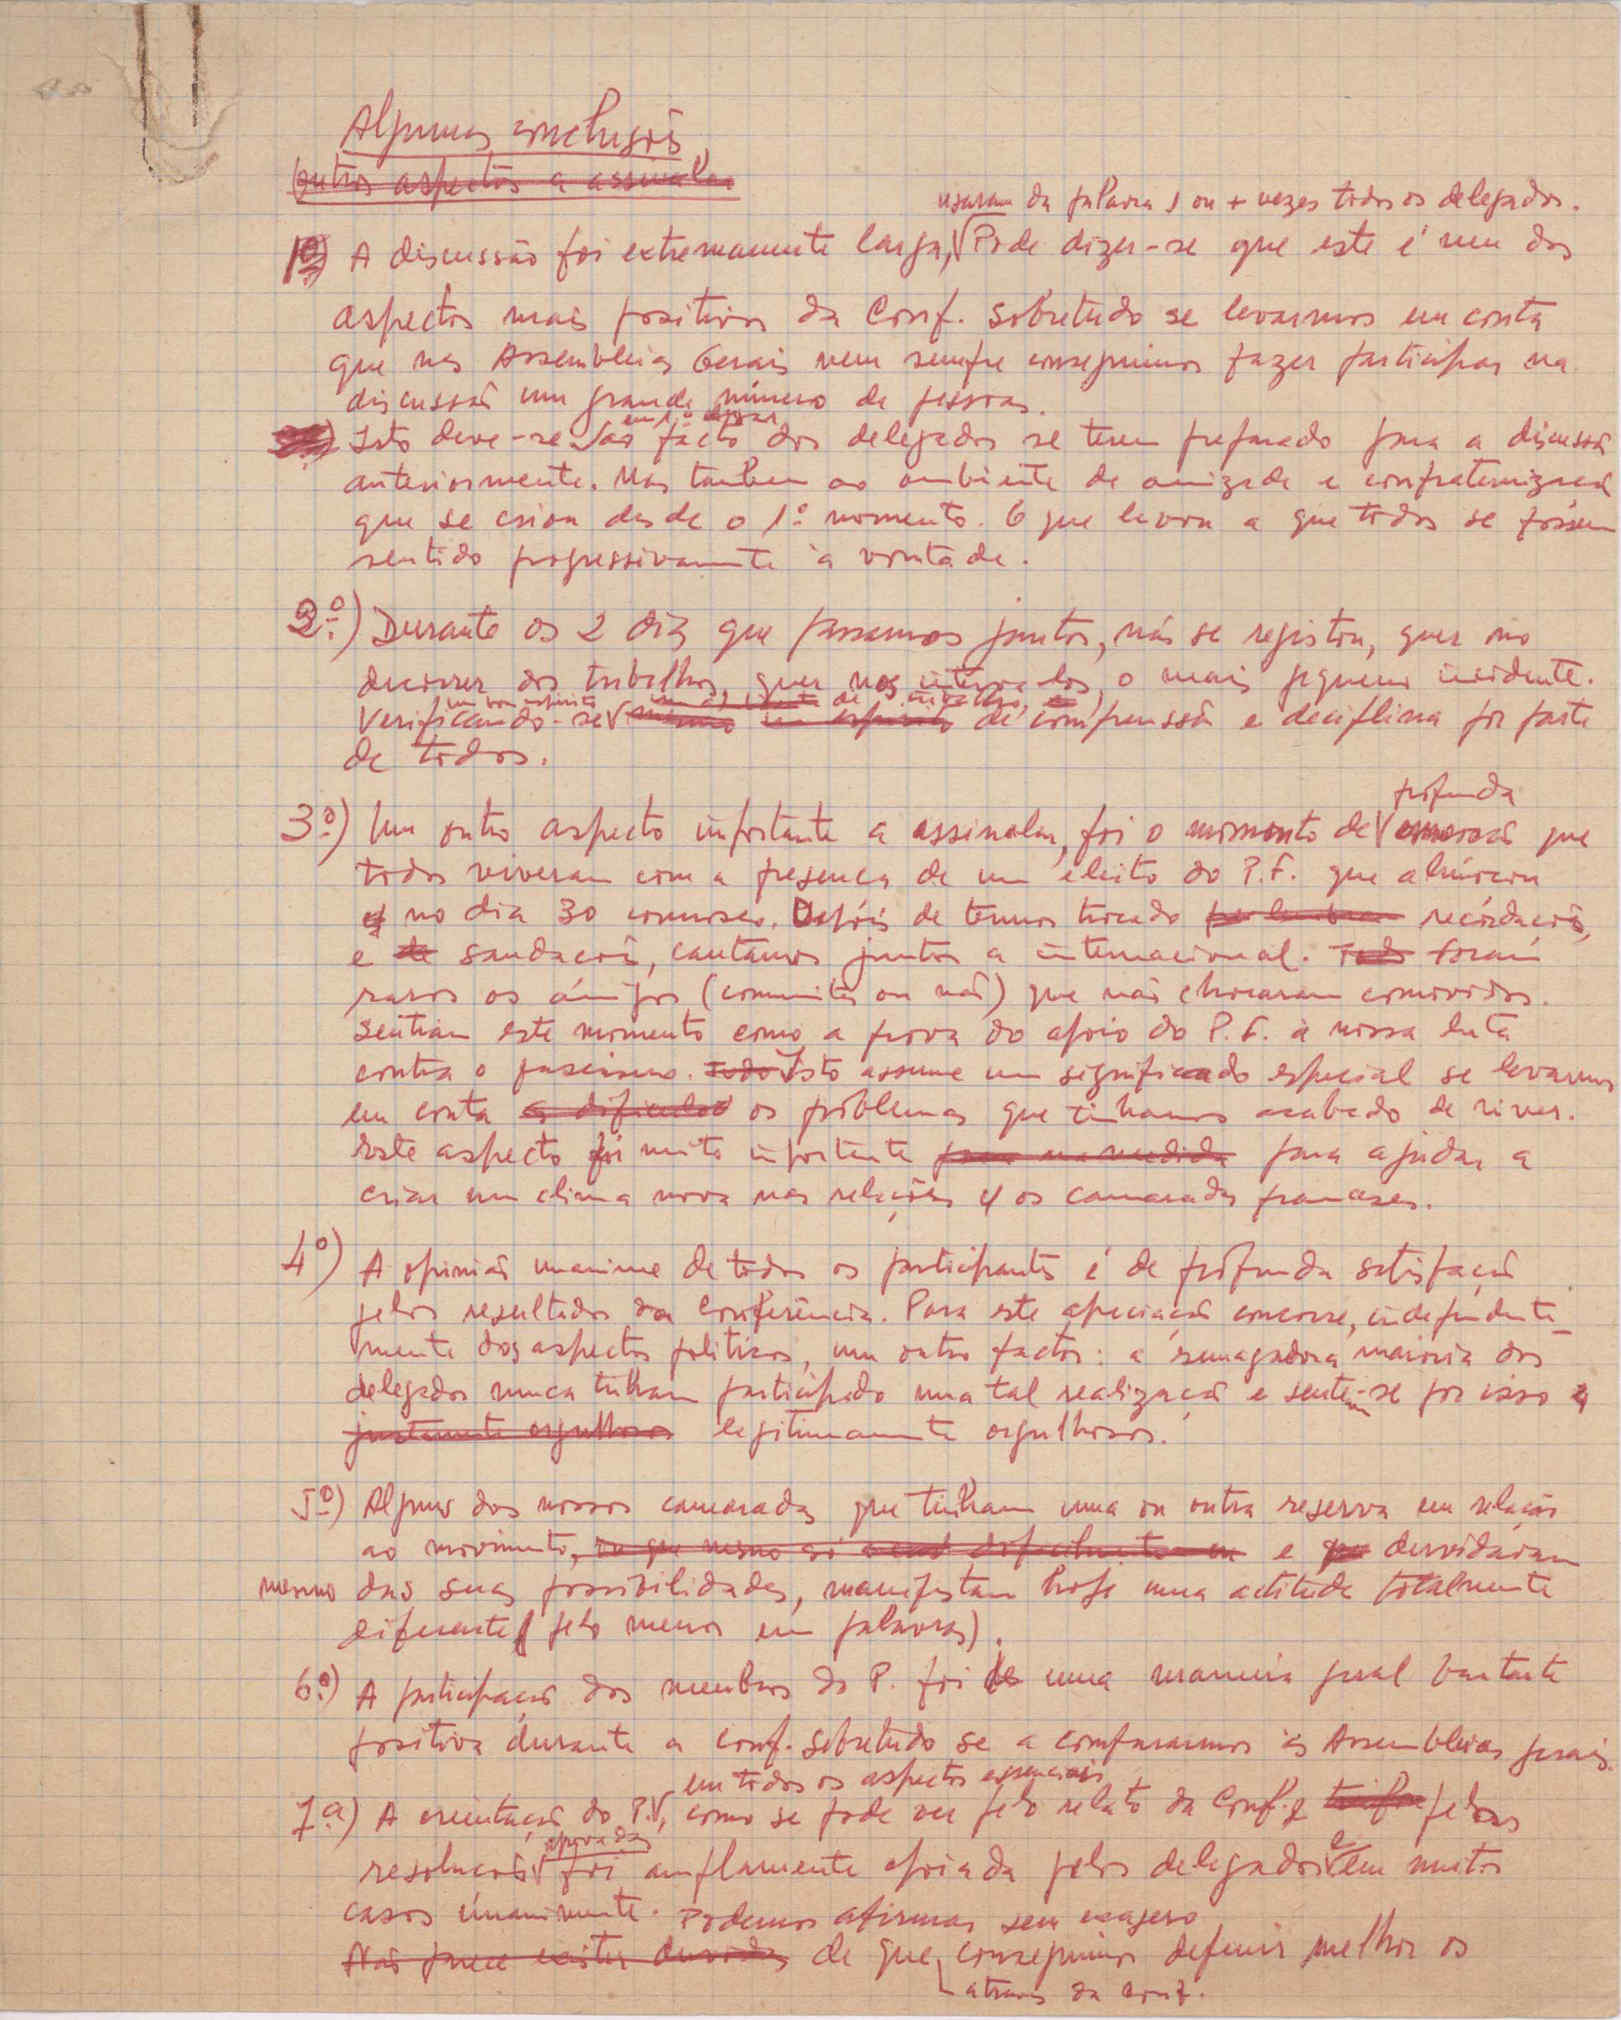 Algumas conclusões
Outros aspectos a assinalar
usaram da palavra 1 ou + vezes todos os delegados.
1º) A discussão foi extremamente larga, Pode dizer-se que este é um dos
aspectos mais positivos da Conf. sobretudo se levarmos em conta
que nas Assembleias Gerais nem sempre conseguimos fazer participar na
discussão um grande número de pessoas.
em 1º lugar
Isto deve-se ao facto dos delegados se terem preparado para a discussão
anteriormente. Mas tambem ao ambiente de amizade e confraternização
que se criou desde o 1º momento. O que levou a que todos se fossem
sentido progressivamente à vontade.
2º) Durante os 2 dias que passamos juntos, não se registou, quer no
decorrer dos trabalhos, quer nos intervalos, o mais pequeno incidente.
um bom espirito de trabalho, e
Verificando-se um espirito de compreensão e deciplina por parte
de todos.
profunda
3º) Um outro aspecto importante a assinalar, foi o momento de emoção que
todos viveram com a presença de um eleito do P.F. que almoçou
no dia 30 connosco. Depois de termos trocado recordações,
e de saudações, cantamos juntos a internacional. Todos foram
raros os amigos (comunistas ou não) que não choraram comovidos.
sentiam este momento como a prova do apoio do P.F. à nossa luta
contra o fascismo. Todo Isto assume um significado especial se levarmos
em conta as dificuldades os problemas que tinhamos acabado de viver.
Este aspecto foi muito importante para na medida para ajudar a
criar um clima novo nas relações c/ os camaradas franceses.
4º) A opinião unanime de todos os participantes é de profunda satisfação
pelos resultados da Conferência. Para este apreciação concorre, independente-
mente dos aspectos politicos, um outro factor: a esmagadora maioria dos
delegados nunca tinham participado numa tal realização e sentem-se por isso
justamente orgulhosos legitimamente orgulhosos.
5º) Alguns dos nossos camaradas que tinham uma ou outra reserva em relação
ao movimento, e duvidavam
mesmo das suas possibilidades, manifestam hoje uma atitude totalmente
diferente (pelo menos em palavras).
6º) A participação dos membros do P. foi de uma maneira geral bastante
positiva durante a conf. sobretudo se a compararmos às Assembleias gerais.
em todos os aspectos essenciais
7º) A orientação do P., como se pode ver pelo relato da Conf. e pelas
aprovadas
resoluções foi amplamente apoiada pelos delegados e em muitos
casos únanimente. Podemos afirmar sem exagero
Não parece existir duvidas de que conseguimos definir melhor os
através da conf.